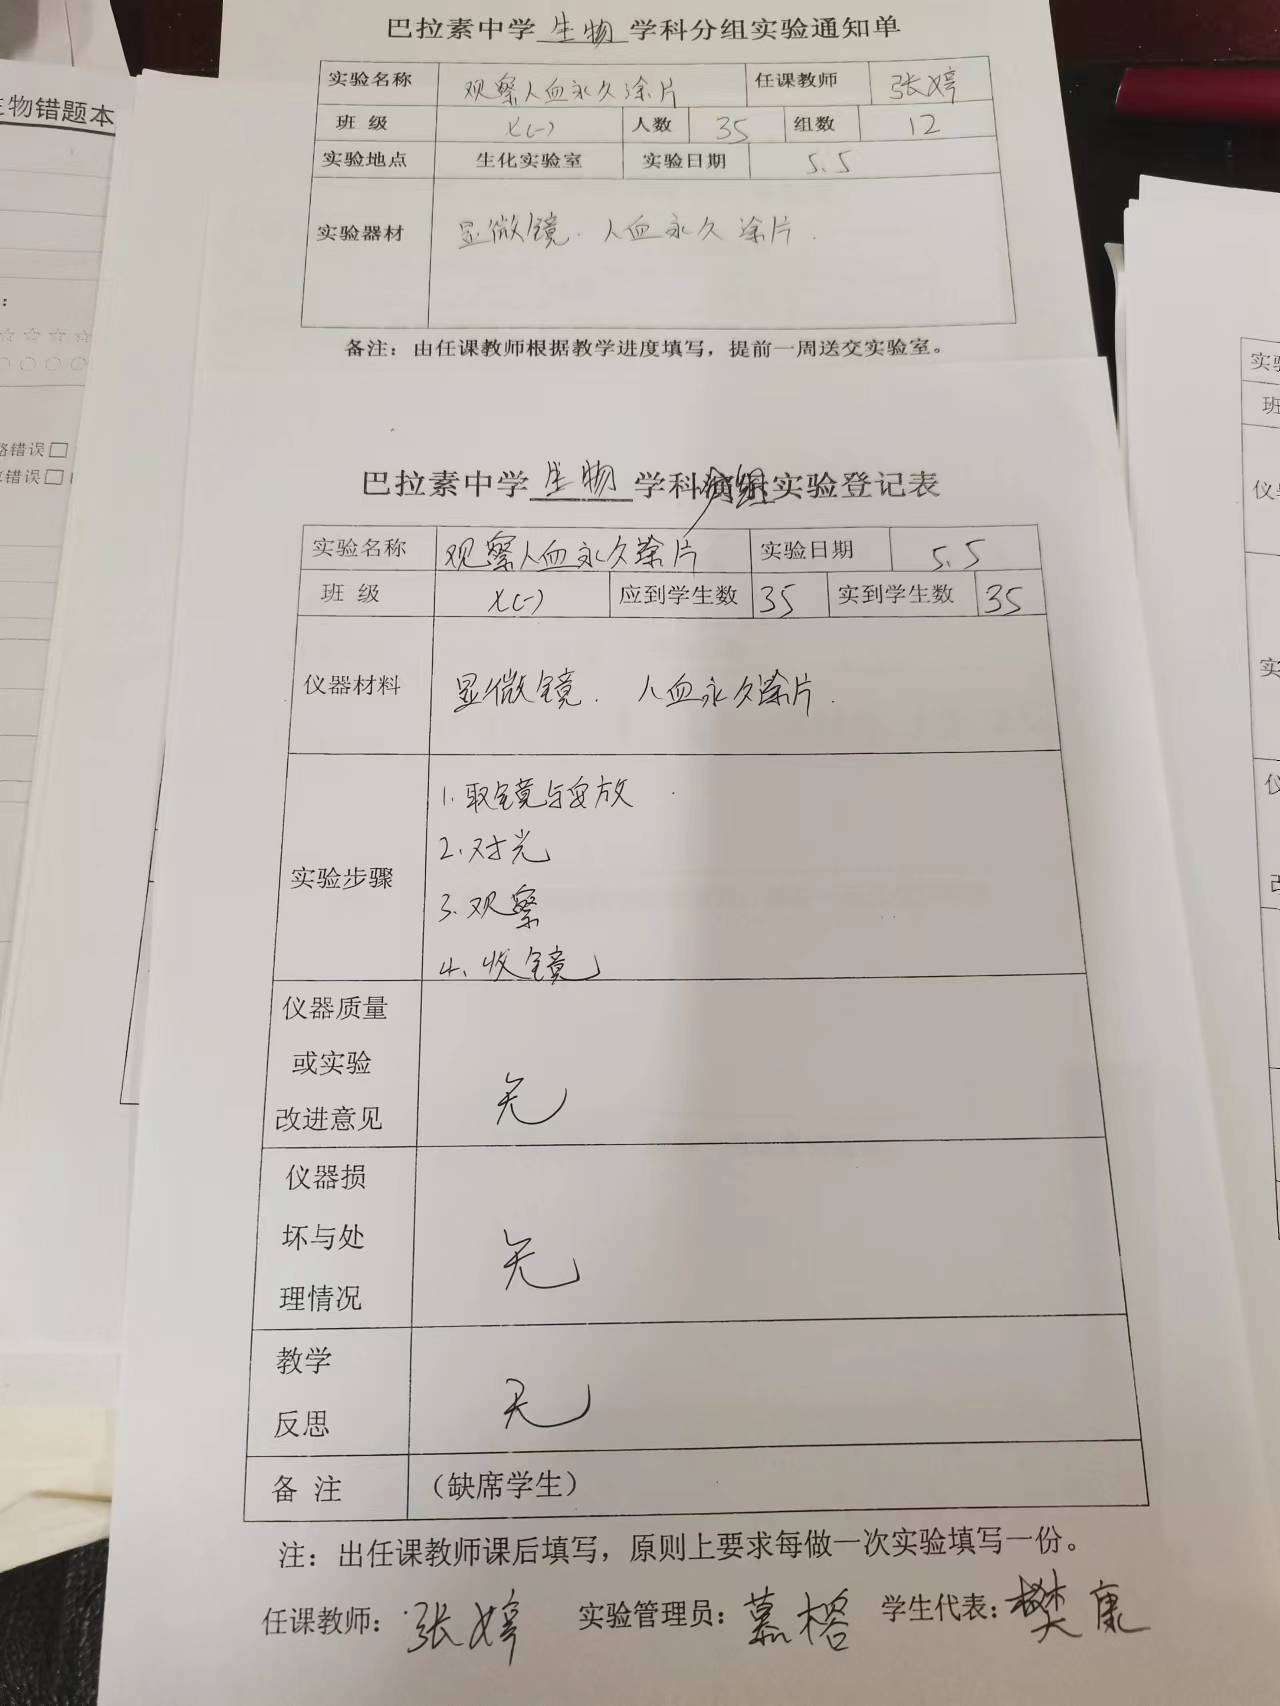 巴拉素中学 生物 学科分组实验通知单
实验名称 观察人血永久涂片 任课教师 张婷
班 级 七(一) 人数 35 组数 12
实验地点 生化实验室 实验日期 5.5
实验器材 显微镜. 人血永久涂片.
备注：由任课教师根据教学进度填写，提前一周送交实验室。
巴拉素中学 生物 学科分组实验登记表
实验名称 观察人血永久涂片 实验日期 5.5
班 级 七(一) 应到学生数 35 实到学生数 35
仪器材料 显微镜. 人血永久涂片.
实验步骤
1.取镜与安放
2.对光
3.观察
4.收镜
仪器质量
或实验
改进意见
无
仪器损
坏与处
理情况
无
教学
反思
无
备 注 （缺席学生）
注：出任课教师课后填写，原则上要求每做一次实验填写一份。
任课教师：张婷 实验管理员：慕榕 学生代表：樊康
生物错题本
：
☆☆☆☆
○○○○
略错误□
错误□
实验
班
仪器
实
仪
改